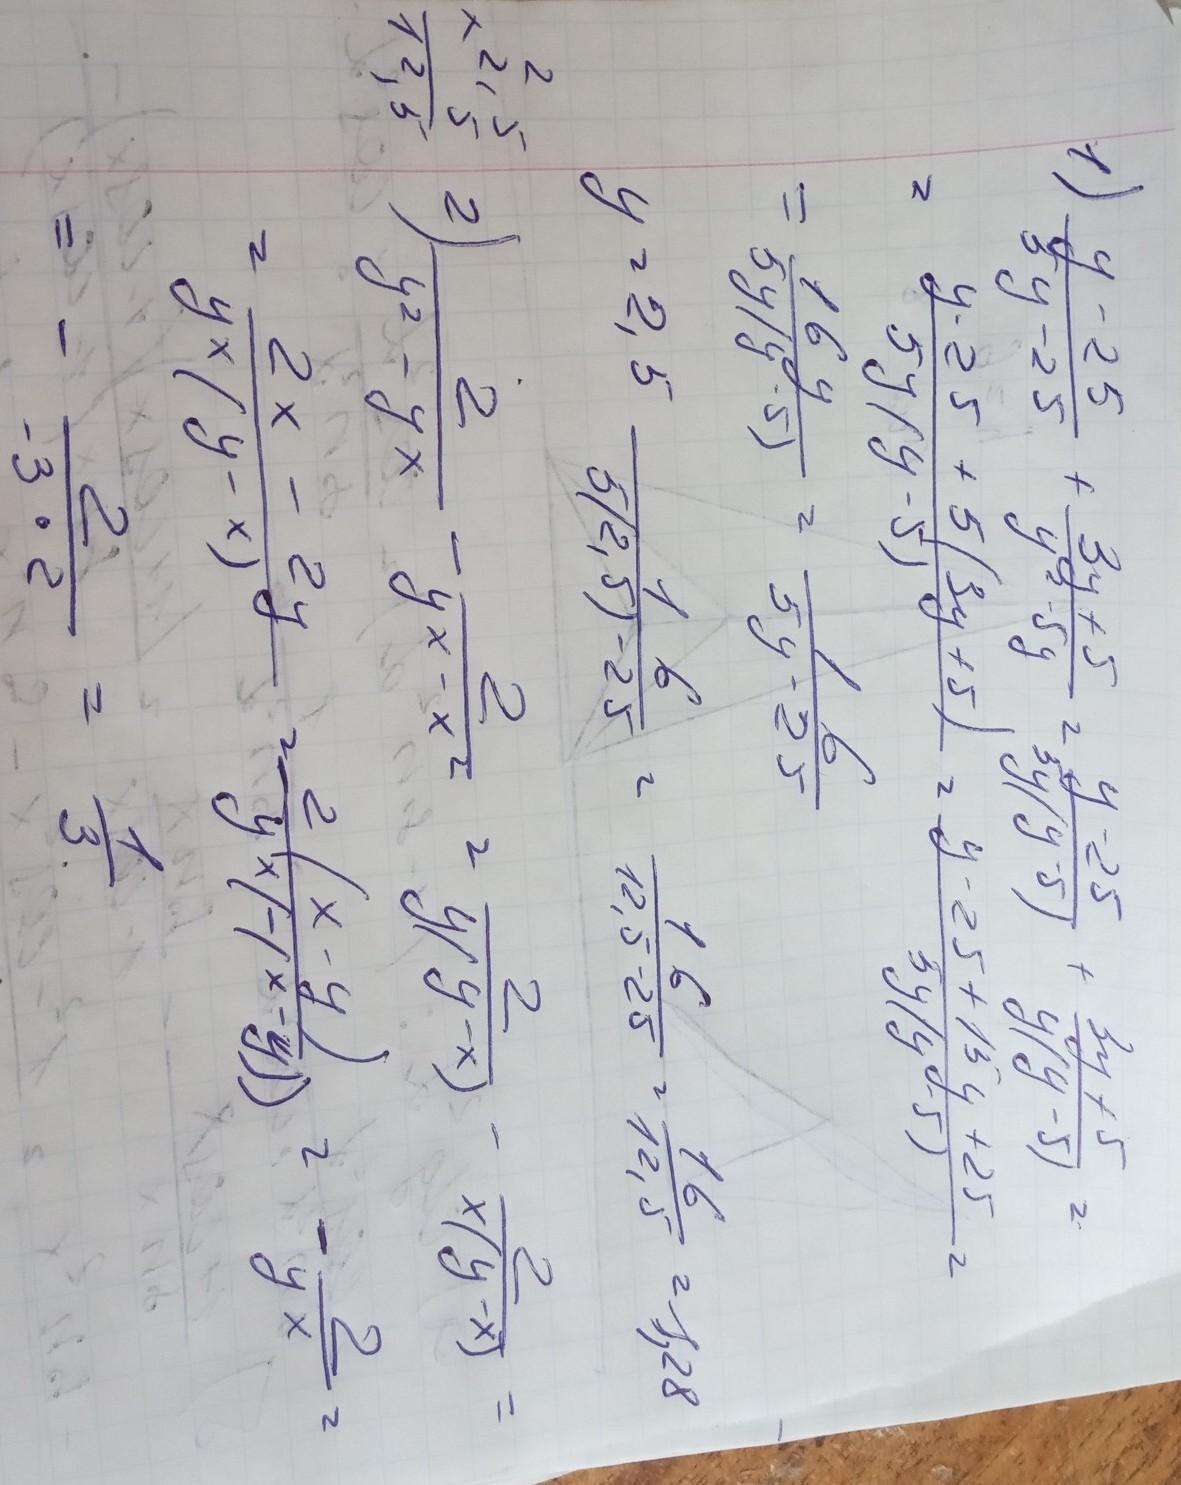 1) (y-25)/(5y-25) + (3y+5)/(y²-5y) = (y-25)/(5y(y-5)) + (3y+5)/(y(y-5)) =
= (y-25+5(3y+5))/(5y(y-5)) = (y-25+15y+25)/(5y(y-5)) =
= 16y/(5y(y-5)) = 16/(5y-25)
y=2,5 16/(5(2,5)-25) = 16/(12,5-25) = 16/12,5 = 1,28
2
2,5
x 5
12,5
2) 2/(y²-yx) - 2/(yx-x²) = 2/(y(y-x)) - 2/(x(y-x)) =
= (2x-2y)/(yx(y-x)) = 2(x-y)/(yx(-(x-y))) = -2/(yx) =
= - 2/(-3·2) = 1/3